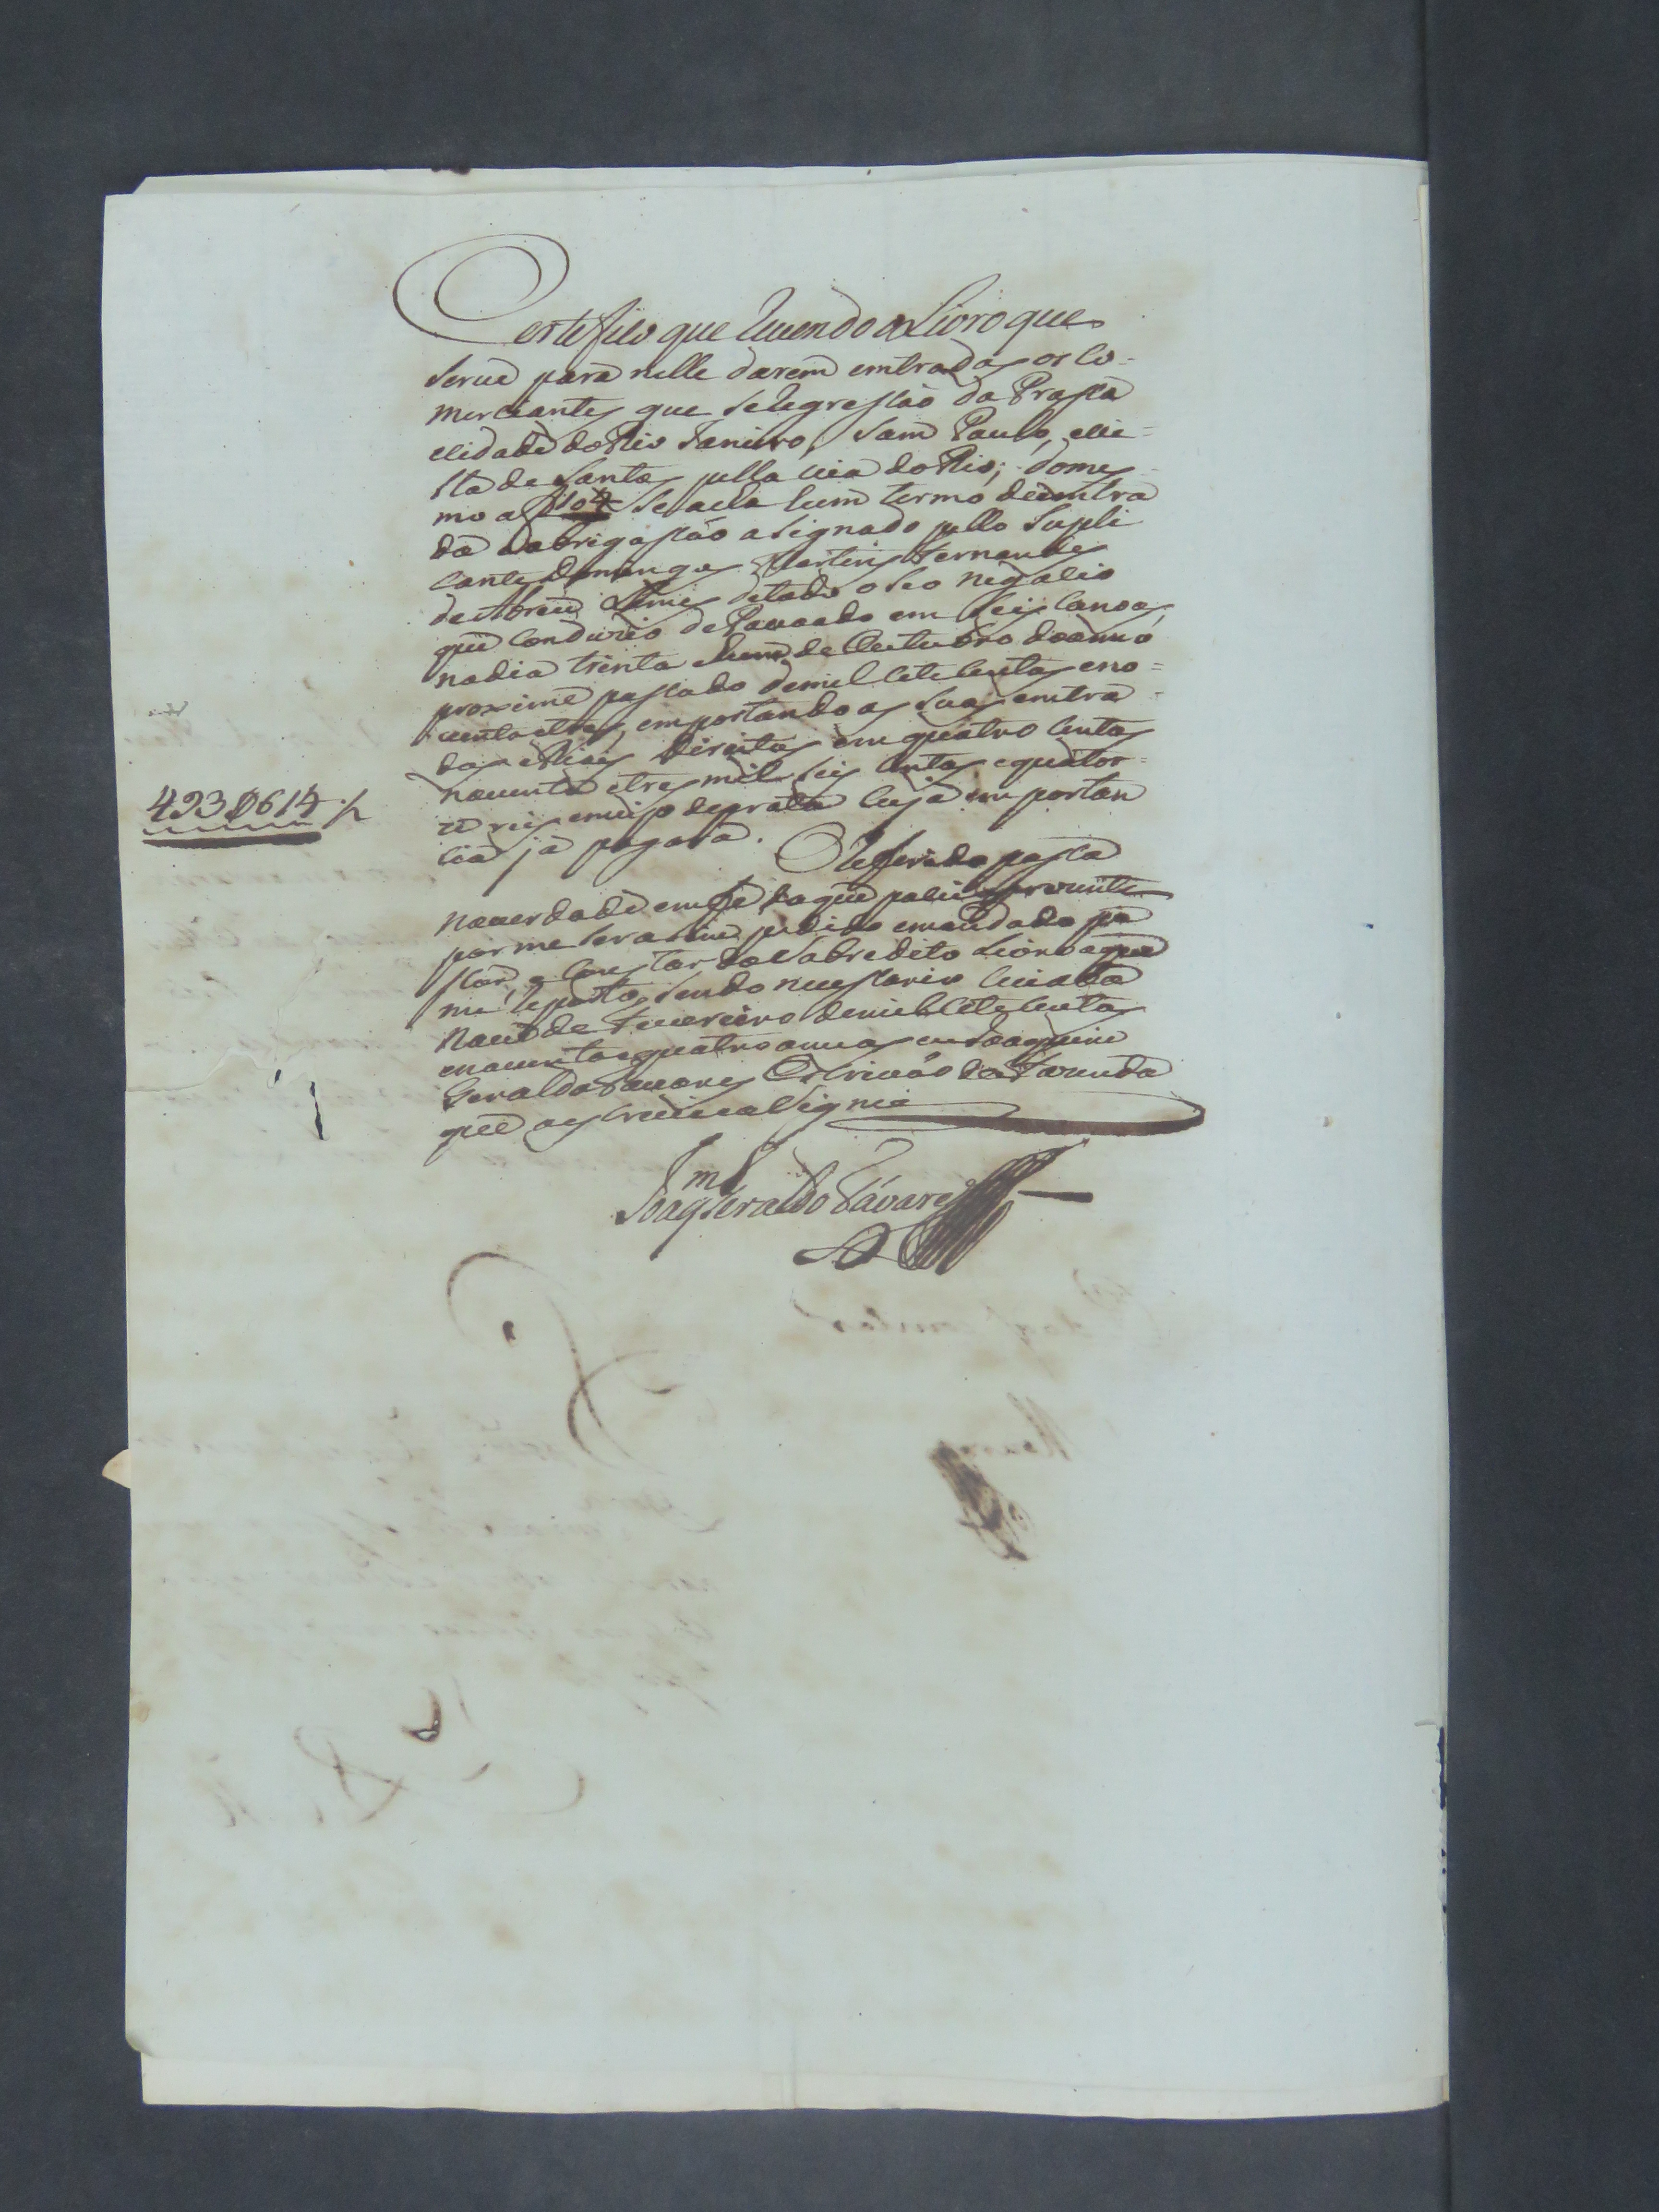 Certefico que vivendo o Livro que
serve para nelle darem emtradas os Co-
merciantes que se regressão da Prassa
e Cidade do Rio Janeiro, Sam Paulo, e Vi=
lla de Santos pella via do Rio; do mes-
mo a f 104 se acha hum termo de emtra
da e obrigassão asignado pello Supli
cante Domingos Martins Fernandes
de Abreu Lima de todo o seo negocio
que conduzio de Povoado em seis Canoas,
no dia trinta e hum de Outubro do anno
proximo passado de mil sete centos e no=
venta e tres, emportando as suas emtra-
das e Reais Direitos em quatro centos
noventa e tres mil seis centos e quator=
ze reis em do de prata cuja emportan
cia já pagara. O Referido passa
na verdade em fé do que passei a prezente
por me ser asim pedido e mandado pa
ssar, e constar do sobredito Livro a que
me reporto, sendo nessesario Cuiabá
nove de Fevereiro de mil sete centos
e noventa e quatro annos eu Joaquim
Geraldo Tavares Escrivão da Fazenda
que o escrevi e asignei
493$614 rs
Joaqm Geraldo Tavares